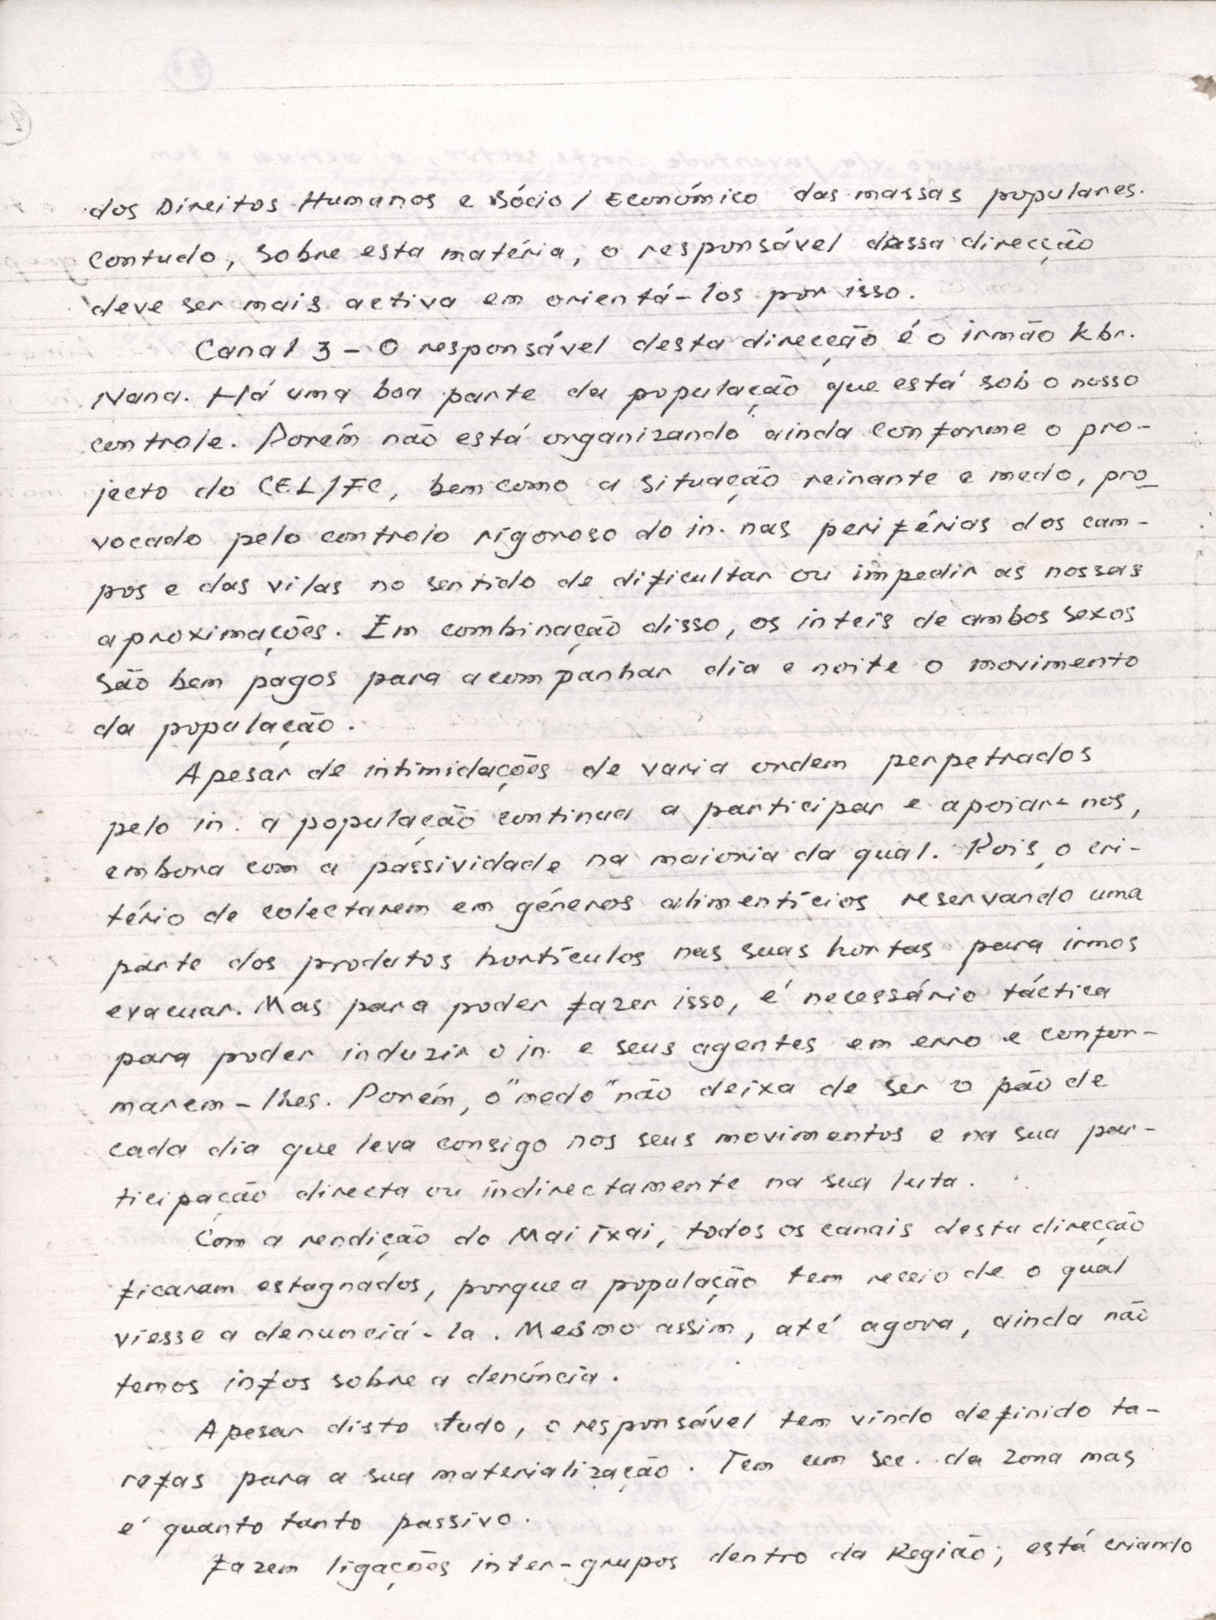 dos Direitos Humanos e Sócio/Económico das massas populares.
contudo, sobre esta matéria, o responsável dessa direcção
deve ser mais activa em orientá-los por isso.
Canal 3 - O responsável desta direcção é o irmão kbr.
Nana. Há uma boa parte da população que está sob o nosso
controle. Porém não está organizando ainda conforme o pro-
jecto do CEL/FC, bem como a situação reinante e medo, pro-
vocado pelo controlo rígoroso do in. nas periférias dos cam-
pos e das vilas no sentido de dificultar ou impedir as nossas
aproximações. Em combinação disso, os inteis de ambos sexos
são bem pagos para acompanhar dia e noite o movimento
da população.
Apesar de intimidações de varia ordem perpetrados
pelo in. a população continua a participar e apoiar-nos,
embora com a passividade na maioria da qual. Pois, o cri-
tério de colectarem em géneros alimentícios reservando uma
parte dos produtos hortículos nas suas hortas para irmos
evacuar. Mas para poder fazer isso, é necessário táctica
para poder induzir o in. e seus agentes em erro e confor-
marem-lhes. Porém, o "medo" não deixa de ser o pão de
cada dia que leva consigo nos seus movimentos e na sua par-
ticipação directa ou indirectamente na sua luta.
Com a rendição do Mai Ixai, todos os canais desta direcção
ficaram estagnados, porque a população tem receio de o qual
viesse a denunciá-la. Mesmo assim, até agora, ainda não
temos infos sobre a denúncia.
Apesar disto tudo, o responsável tem vindo definido ta-
refas para a sua materialização. Tem um sec. da zona mas
é quanto tanto passivo.
Fazem ligações inter-grupos dentro da Região; está criando